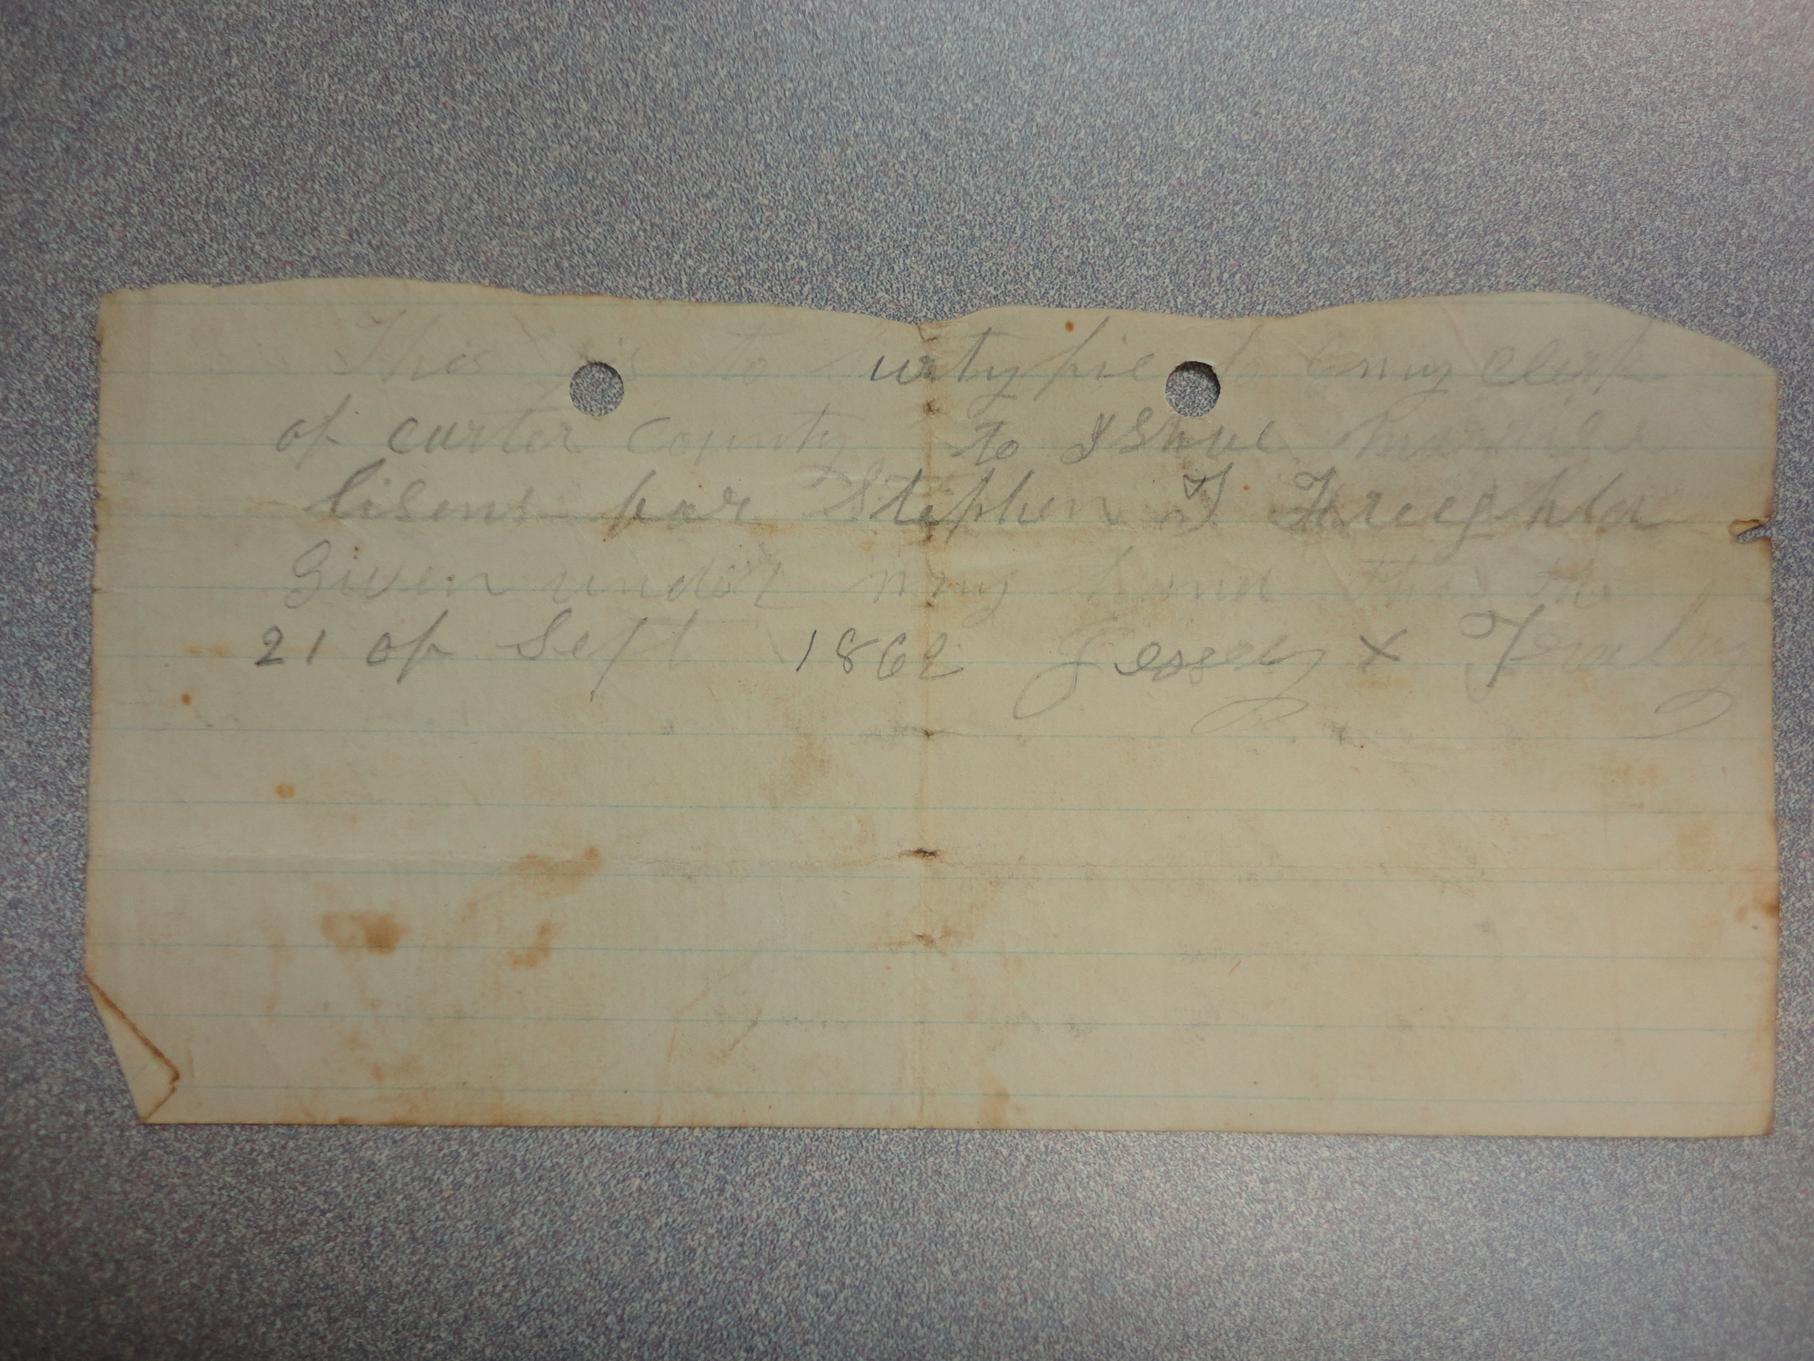 This is to surtyfie to eny clerk
of carter county to Ishue
lisens for Stephen T
Given under my hand this the
21 of Sept 1862 Jessey X